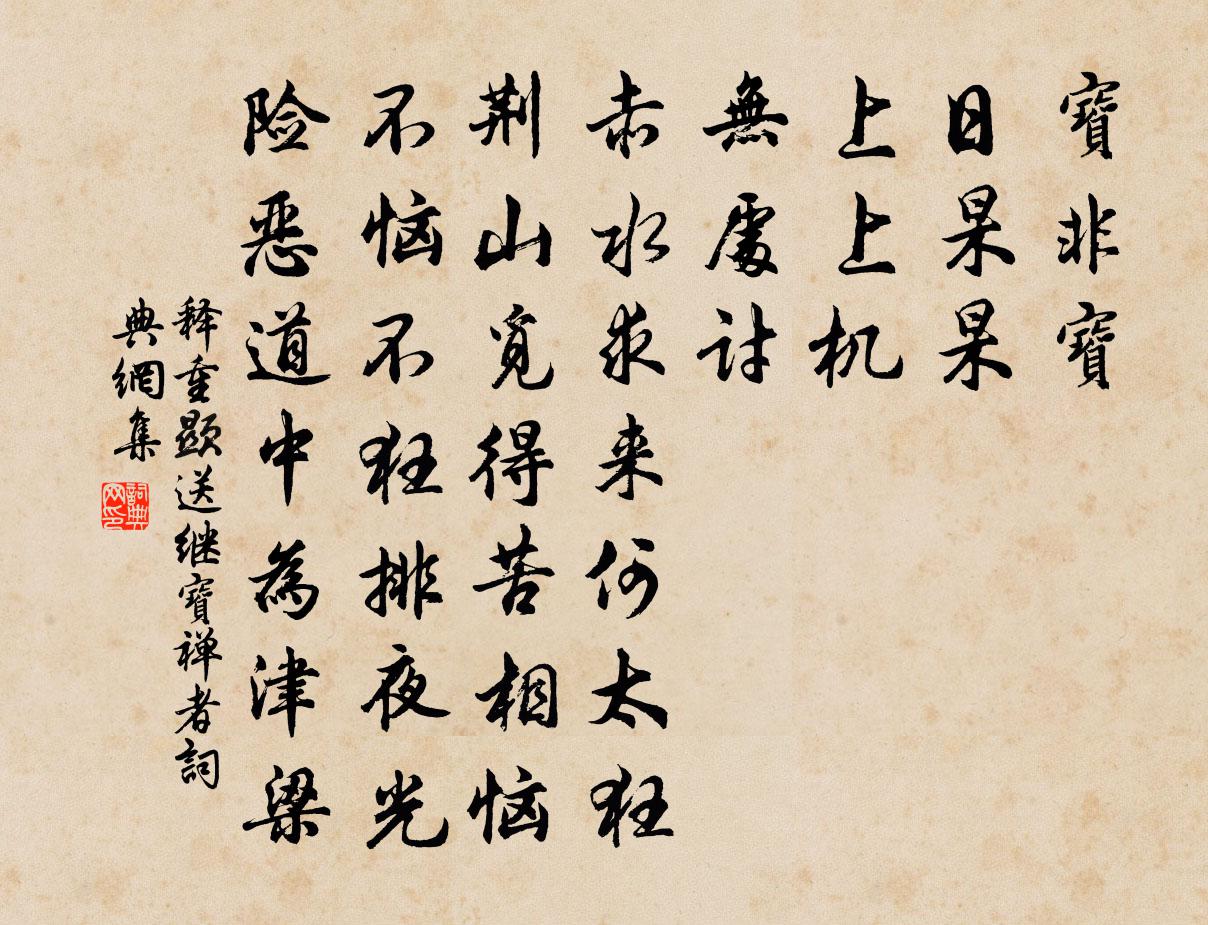 寶非寶
日杲杲
上上机
無處討
赤水求来何太狂
荆山覓得苦相恼
不恼不狂排夜光
险恶道中為津梁
释重顯送继寶禅者詞
典網集
詞典
网印